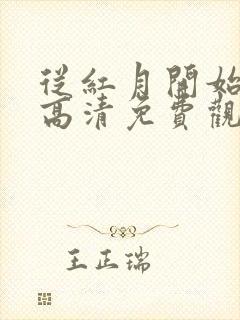 從紅月開始
高清免費觀
王正瑞